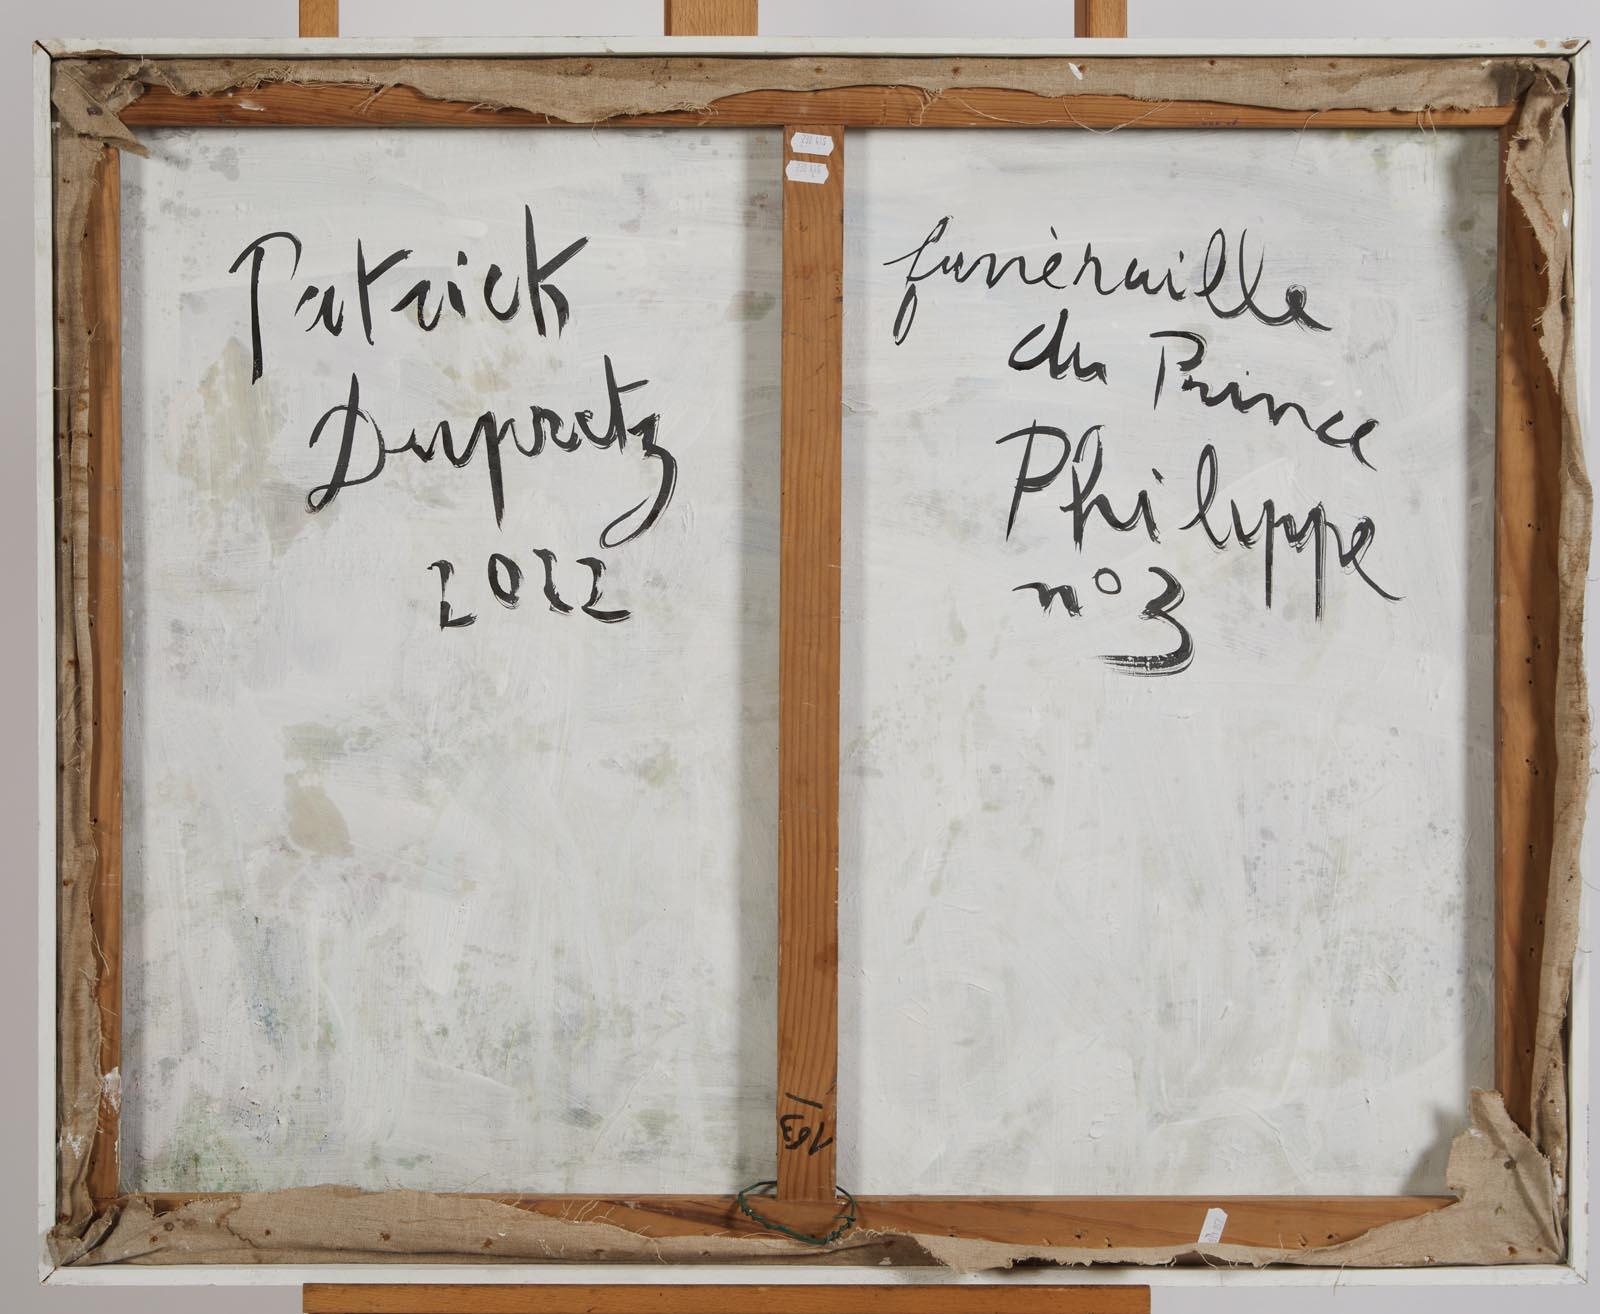 Patrick
Dupretz
2022
funèraille
du Prince
Philippe
n° 3
163